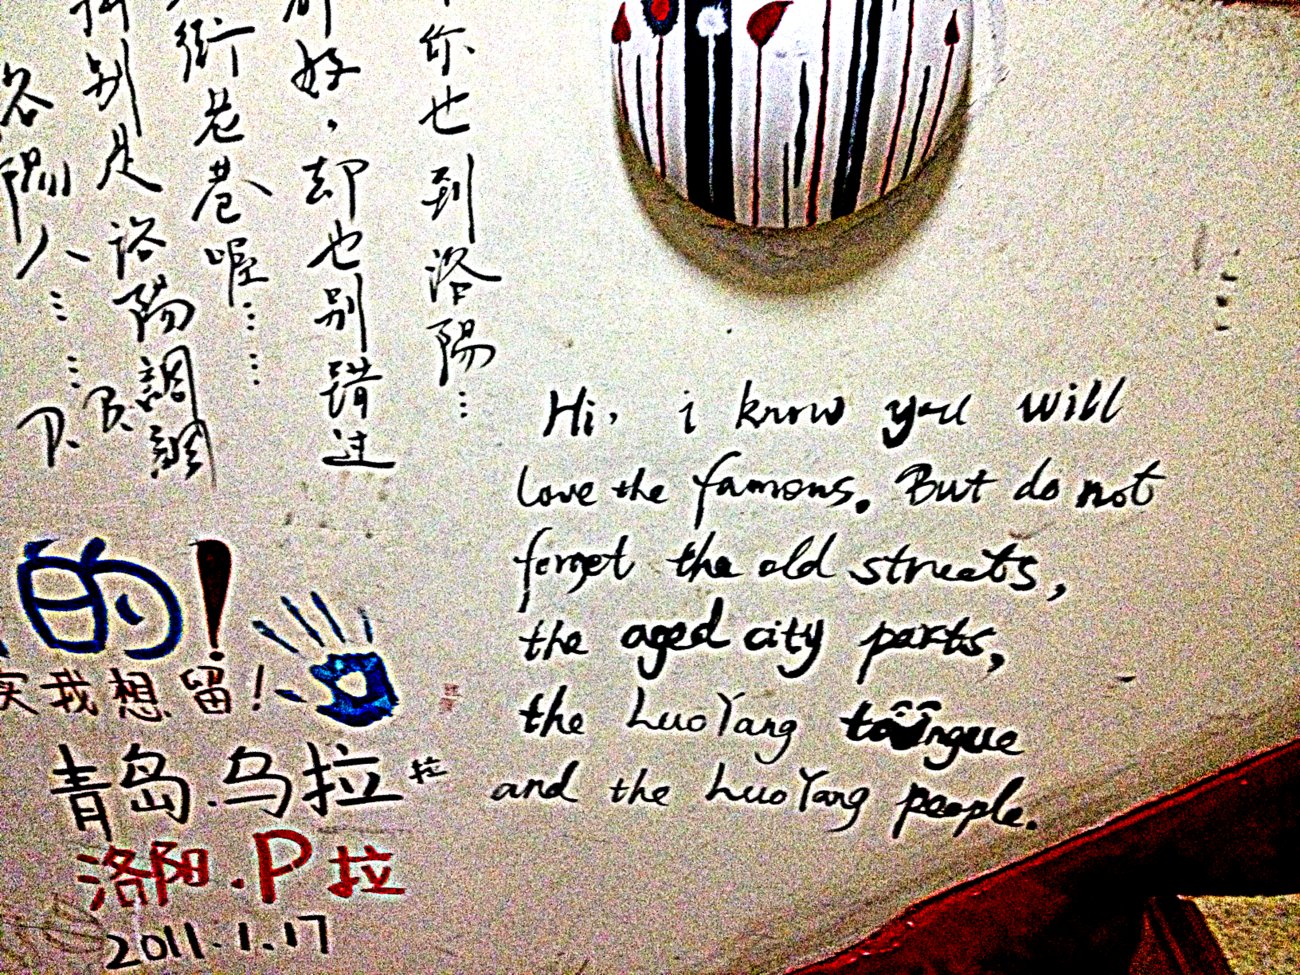 你也到洛陽…
好，却也别错过
街巷巷喔……
别是洛陽調調
洛陽人……
Hi, i know you will
love the famous. But do not
forget the old streets,
the aged city parts,
the LuoYang toungue
and the LuoYang people.
的!
实我想留!
青岛.乌拉拉
洛阳.P拉
2011.1.17